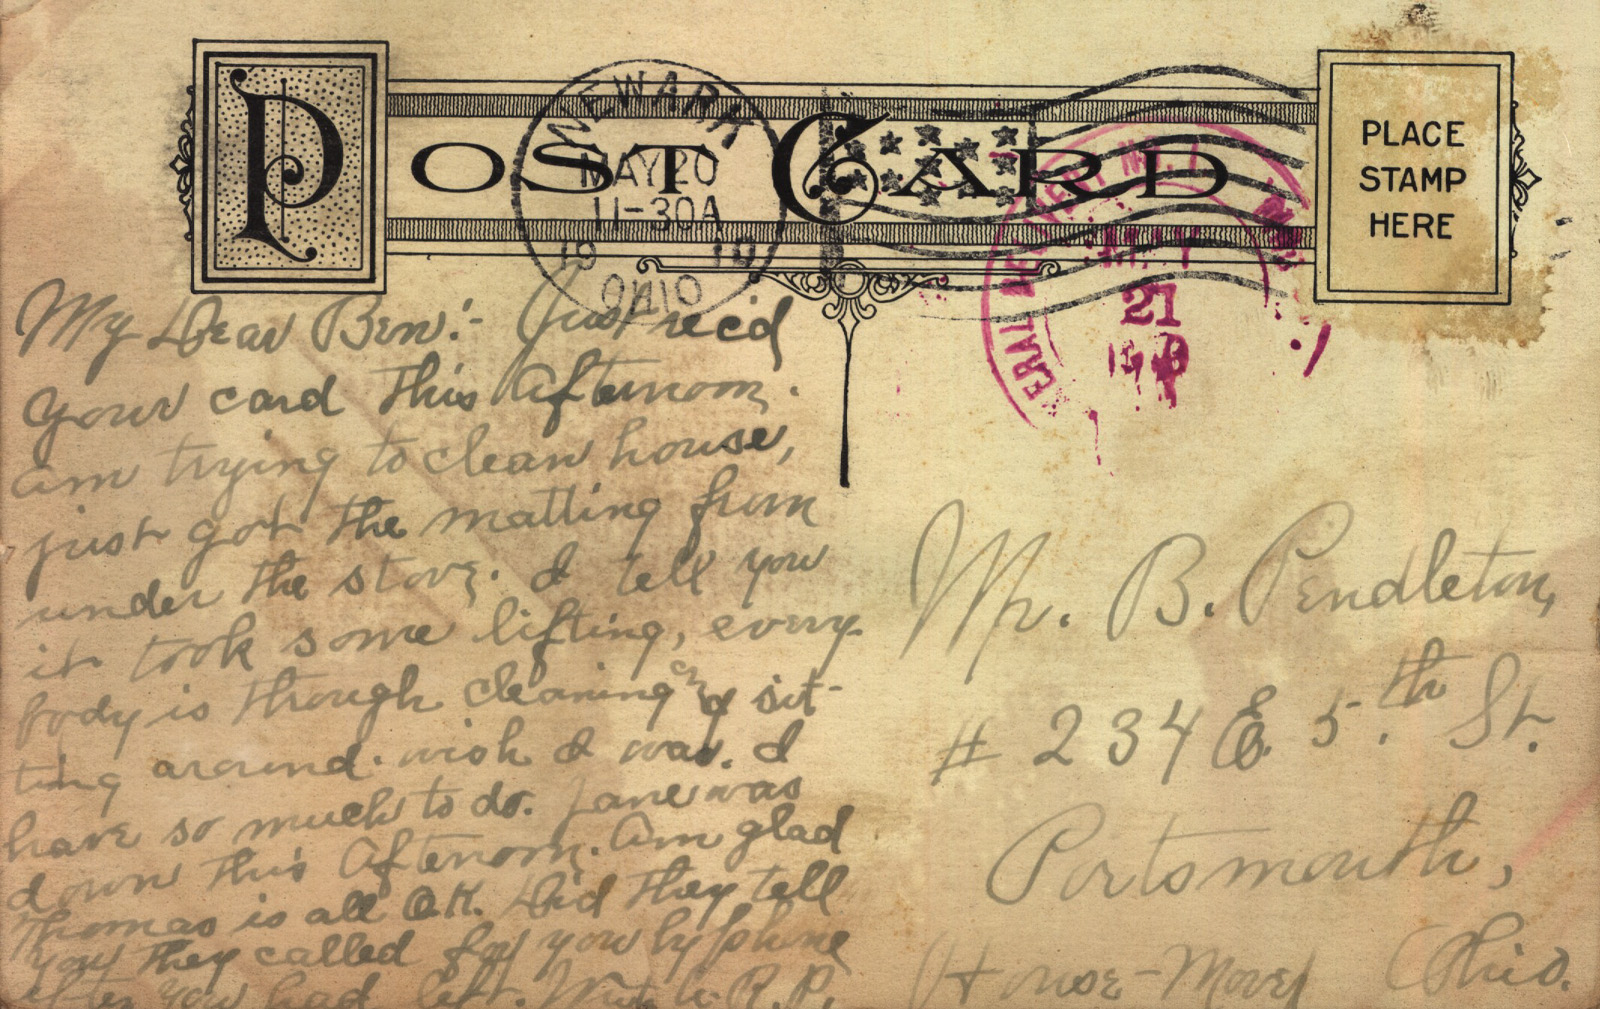 POST CARD
PLACE
STAMP
HERE
NEWARK
MAY 20
11-30A
1910
OHIO
MAY
21
My Dear Ben:- Just rec'd
your card this afternoon.
am trying to clean house,
just got the matting from
under the stove. I tell you
it took some lifting, every-
body is through cleaning & sit-
ting around. wish I was. I
have so much to do. Jane was
down this afternoon. am glad
Thomas is all O.K. Did they tell
you they called for you by phone
after you had left. Write to R.P.
Mr. B. Pendleton,
# 234 E. 5.th St.
Portsmouth,
House-Mover Ohio.